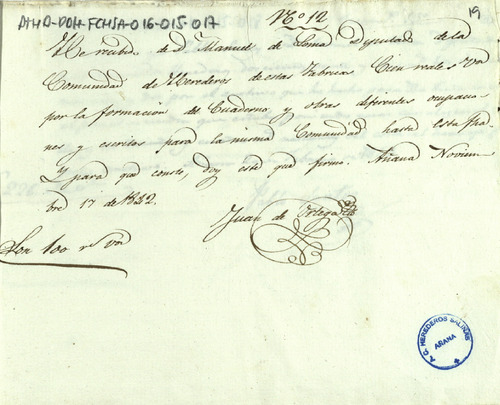 ATHA-DOH-FCHSA-016-015-017
Nº 12
19
He recibido de d. Manuel de Toma Diputado de la
Comunidad de Herederos de estas Fabricas Cien reales Von
por la formacion del Cuaderno, y otras diferentes ocupacio-
nes y escritos para la misma Comunidad hasta esta fha
Y para que conste, doy este que firmo. Añana Noviem
bre 17 de 1832.
Juan de Ortega
Son 100 rs von
A.G. HEREDEROS SALINAS
AÑANA